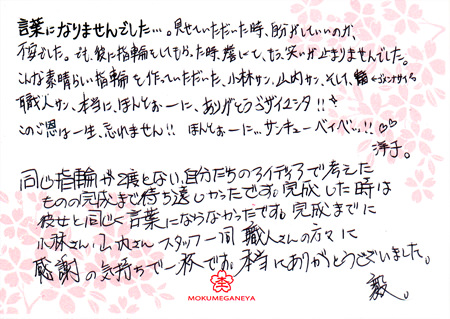 言葉になりませんでした…。見せていただいた時、自分がしていいのか、
不安でした。でも、彼に指輪をしてもらった時、嬉しくて、もう、笑いが止まりませんでした。
こんな素晴らしい指輪を作っていただいた、小林サン、山内サン、そして、
職人サン、本当に、ほんとぉーに、ありがとうゴザイマシタ!!
このご恩は一生、忘れません!! ほんとぉーに…サンキューベイベッ!!♡♡
洋子。
同じ指輪が2度とない、自分たちのアイディアで考えた
ものの完成まで待ち遠しかったです。完成した時は
彼女と同じく言葉にならなかったです。完成までに
小林さん、山内さん スタッフ一同 職人さんの方々に
感謝の気持ちで一杯です。本当にありがとうございました。
毅。
MOKUMEGANEYA